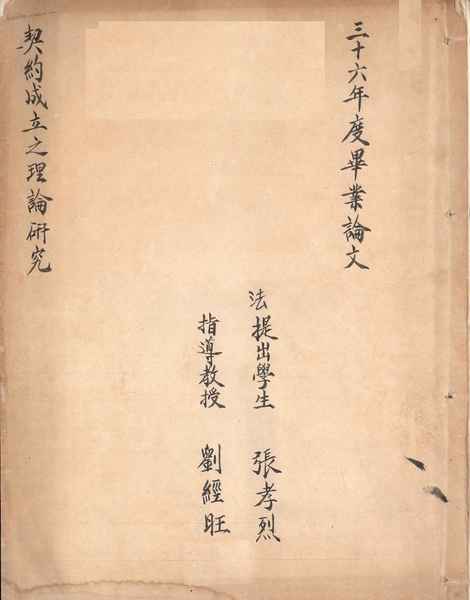 三十六年度畢業論文
法提出學生 張孝烈
指導教授 劉經旺
契約成立之理論研究